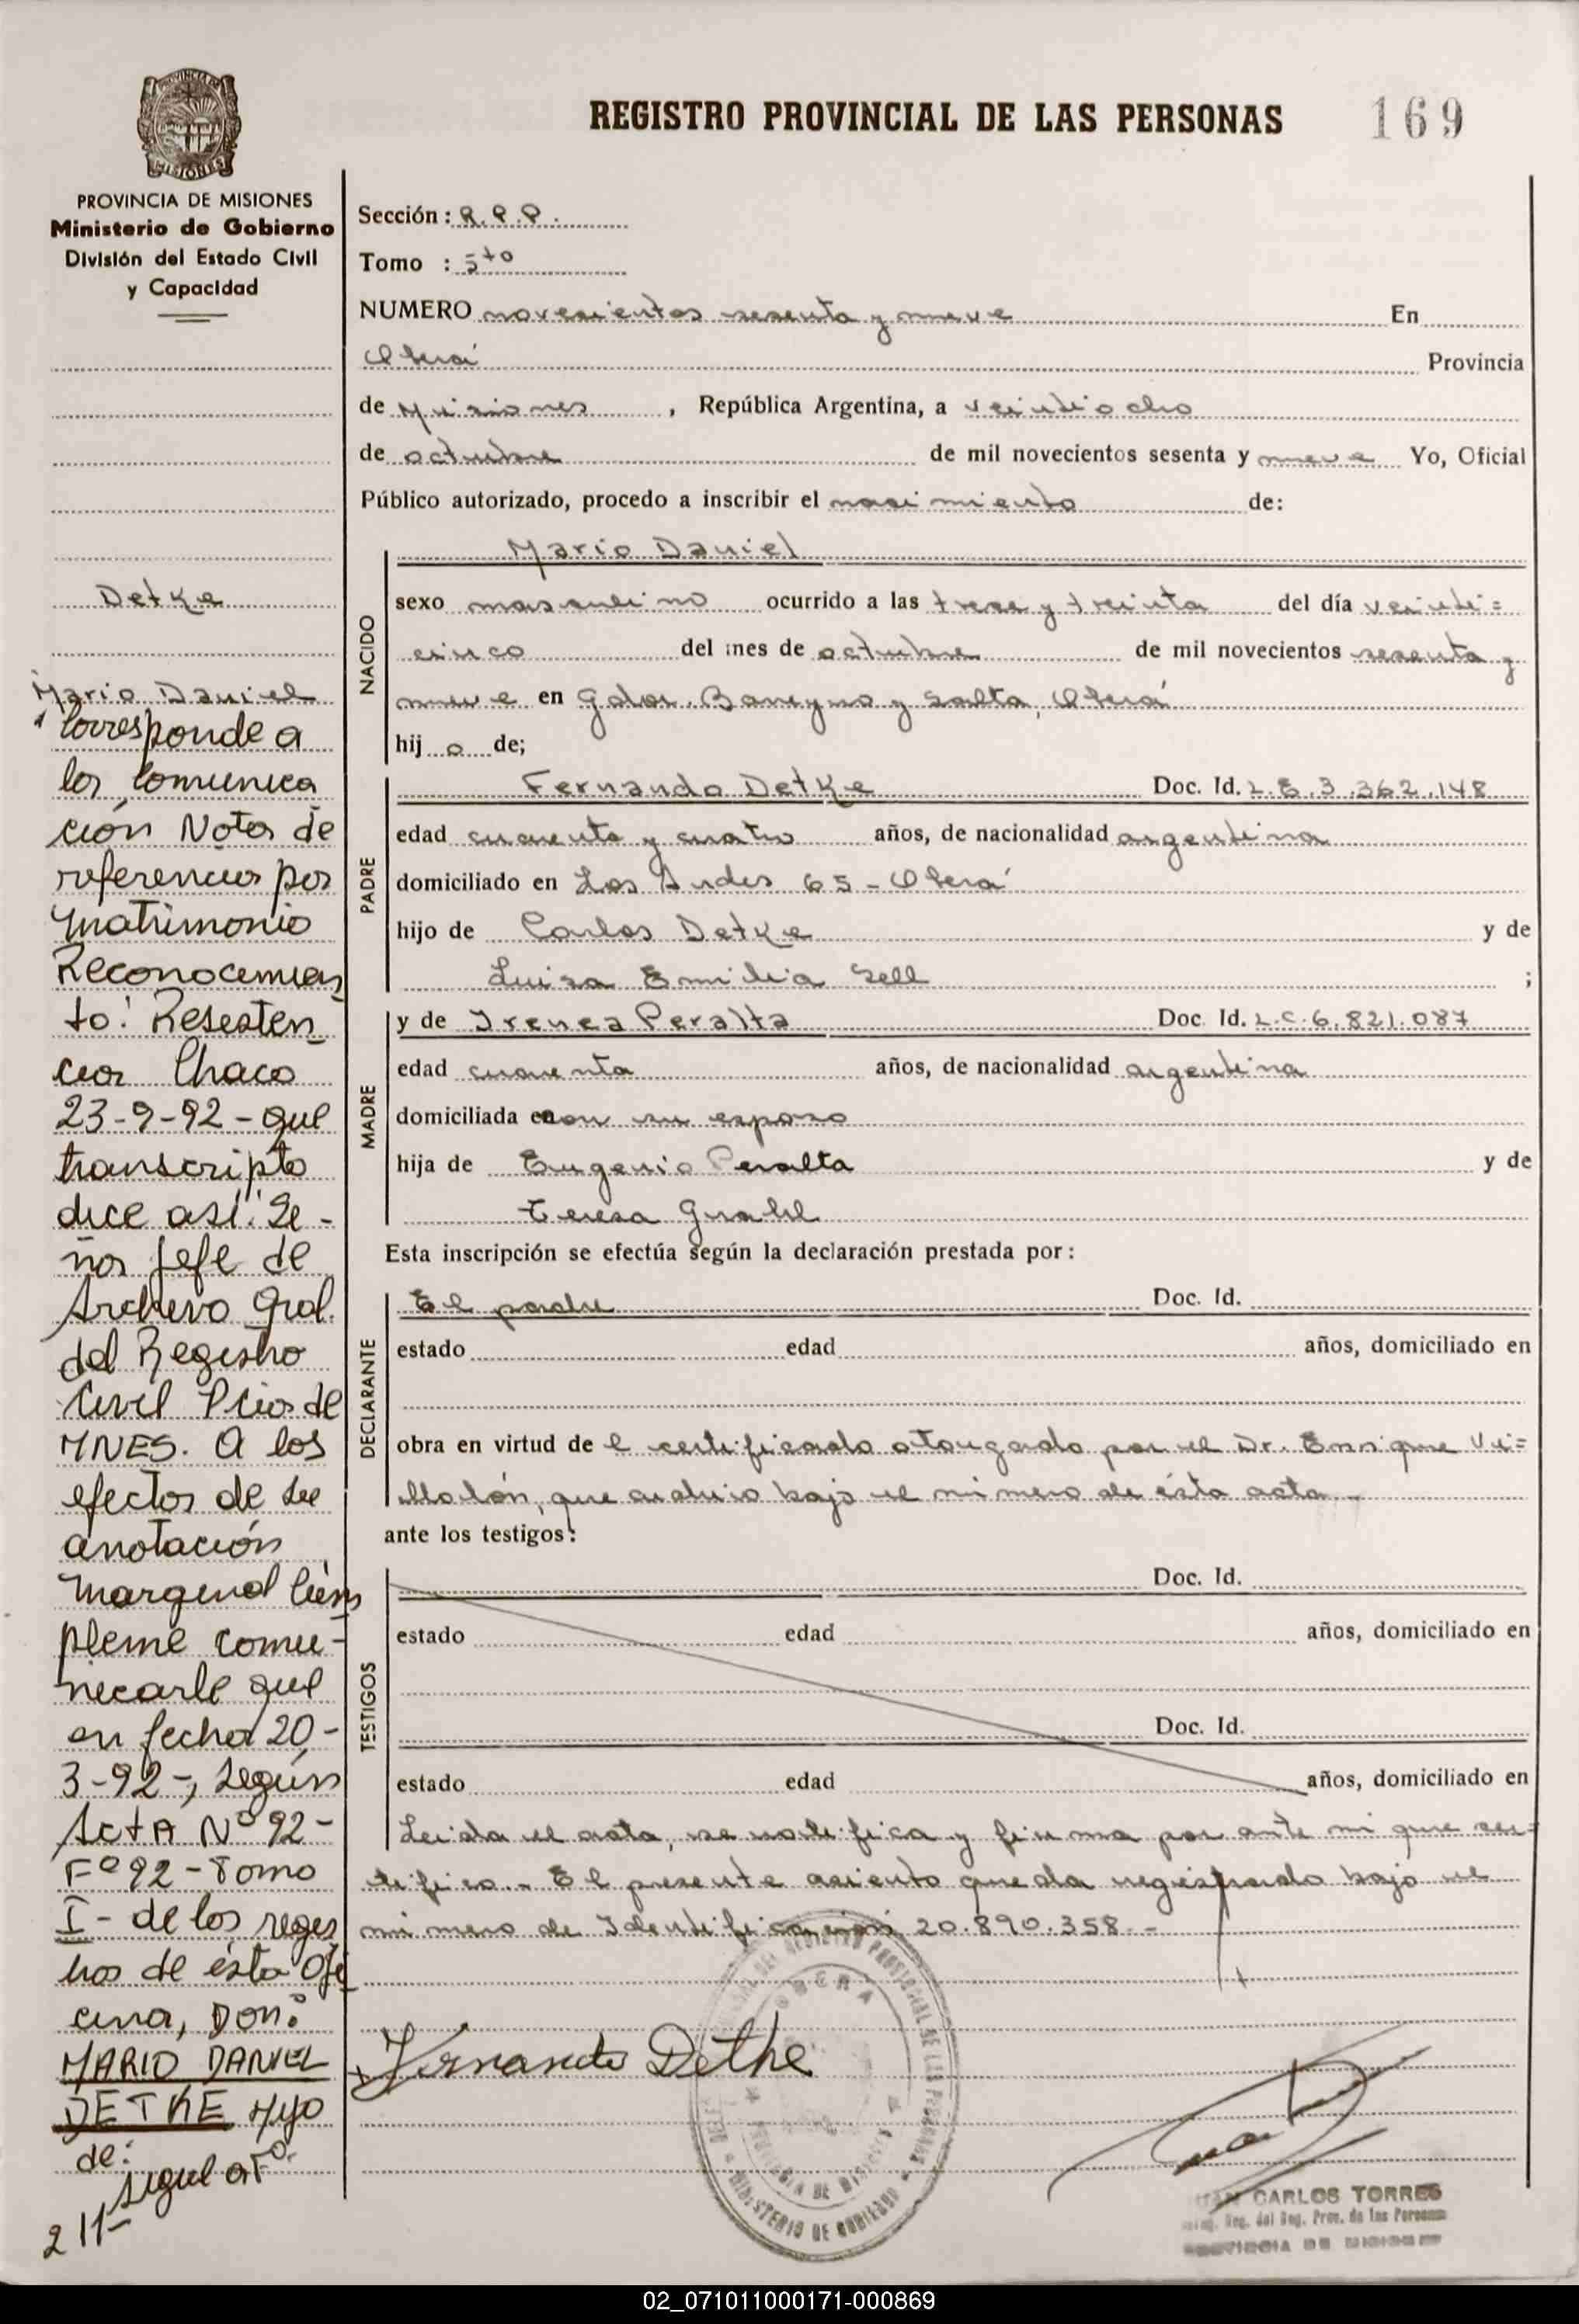 REGISTRO PROVINCIAL DE LAS PERSONAS 169
PROVINCIA DE MISIONES
Ministerio de Gobierno
División del Estado Civil
y Capacidad
Detke
Mario Daniel
Corresponde a
la comunica
ción Nota de
referencia por
Matrimonio
Reconocimien
to: Resisten
cia Chaco
23-9-92- que
transcripto
dice así: Se-
ñor Jefe de
Archivo Gral.
del Registro
Civil Pcia de
MNES. A los
efectos de su
anotación
marginal cúm
pleme comu-
nicarle que
en fecha 20-
3-92-, según
Acta Nº 92-
Fº 92- Tomo
I- de los regis
tros de ésta Ofi
cina, Don:
MARIO DANIEL
DETKE Hijo
de:
sigue a Fº
211-
Sección: R.P.P.
Tomo : 5to
NUMERO novecientos sesenta y nueve En
Oberá Provincia
de Misiones , República Argentina, a veintiocho
de octubre de mil novecientos sesenta y nueve Yo, Oficial
Público autorizado, procedo a inscribir el nacimiento de:
NACIDO
Mario Daniel
sexo masculino ocurrido a las trece y treinta del día veinti=
cinco del mes de octubre de mil novecientos sesenta y
nueve en Gdor. Barreyro y Salta, Oberá
hij o de;
PADRE
Fernando Detke Doc. Id. L.E. 3.362.148
edad cuarenta y cuatro años, de nacionalidad argentina
domiciliado en Los Andes 65 - Oberá
hijo de Carlos Detke y de
Luisa Emilia Sell ;
MADRE
y de Irenea Peralta Doc. Id. L.C. 6.821.087
edad cuarenta años, de nacionalidad argentina
domiciliada con su esposo
hija de Eugenio Peralta y de
Teresa Grahl
Esta inscripción se efectúa según la declaración prestada por:
DECLARANTE
El padre Doc. Id.
estado edad años, domiciliado en
obra en virtud de l certificado otorgado por el Dr. Enrique Vi=
llolón, que archivo bajo el número de ésta acta.-
ante los testigos:
TESTIGOS
Doc. Id.
estado edad años, domiciliado en
Doc. Id.
estado edad años, domiciliado en
Leida el acta, se ratifica y firma por ante mi que cer=
tifico.- El presente asiento queda registrado bajo el
número de Identificación 20.890.358.-
Fernando Dethe
OBERA
PROVINCIA DE MISIONES
MINISTERIO DE GOBIERNO
JUAN CARLOS TORRES
PROVINCIA DE MISIONES
02_071011000171-000869